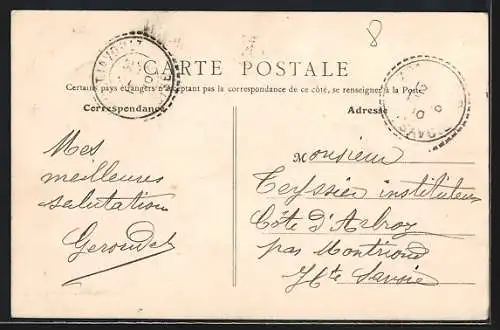 8
CARTE POSTALE
Certains pays étrangers n'acceptant pas la correspondance de ce côté, se renseigner à la Poste
Correspondance
Adresse
Mes
meilleures
salutations
Geroudet
Monsieur
Teyssier instituteur
Côte d'Arbroz
par Montriond
Hte Savoie